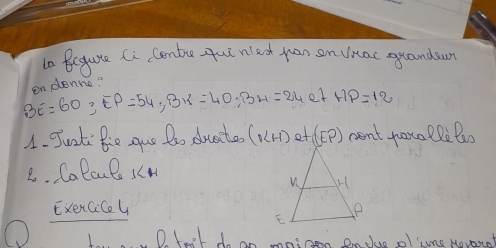 la figure ci contre qui n'est pas en vrac grandeur
on donne :
BE=60 ; EP=54 ; BK=40 ; BH=24 et HP=12
1-Justifie que les droites (KH) et (EP) sont parallèles
2-Calcule KH
K H
Exercice 4
E P
toit de sa maison